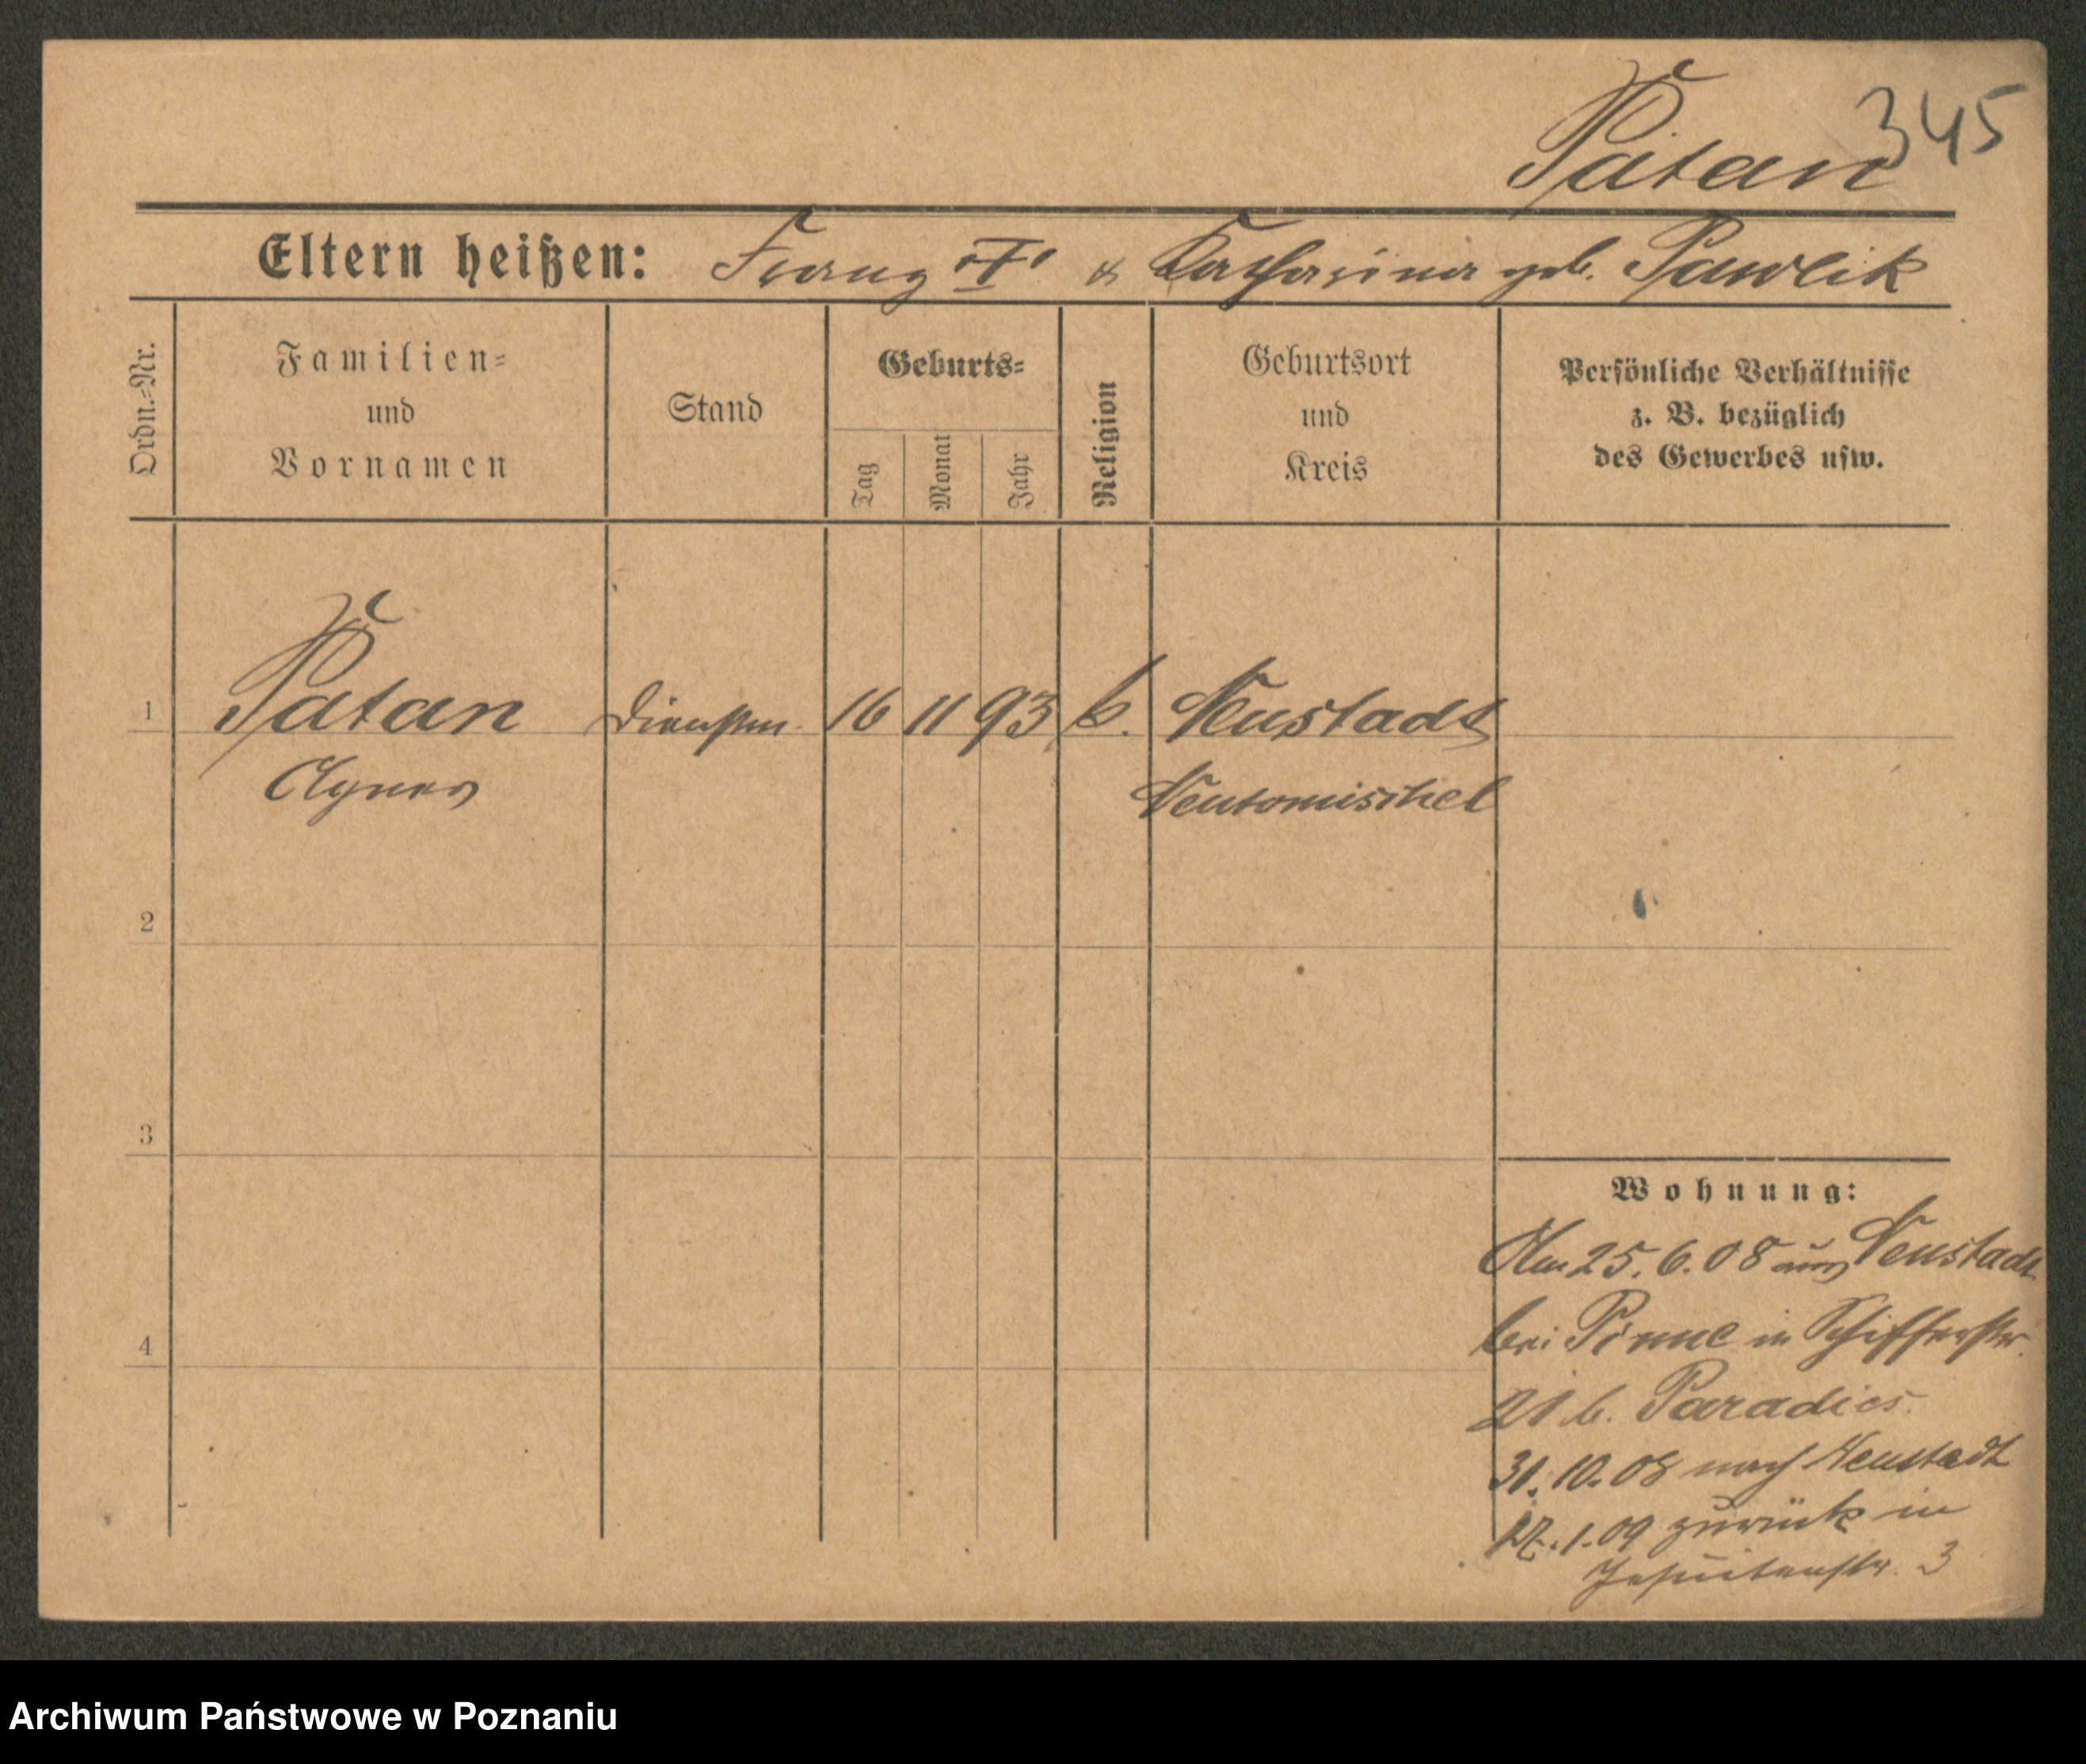 345
Patan
Eltern heißen: Franz & Katharina geb. Pawlik
Ordn.-Nr.
Familien-
und
Vornamen
Stand
Geburts-
Tag
Monat
Jahr
Religion
Geburtsort
und
Kreis
Persönliche Verhältnisse
z. B. bezüglich
des Gewerbes usw.
1 Patan 16 11 93 Neustadt
Agnes Neutomischel
2
3
4
Wohnung:
Am 25.6.08 aus Neustadt
bei Pinne in Schifferstr.
21 b. Paradies.
31.10.08 nach Neustadt
1.09 zurück in
Jesuitenstr. 3
Archiwum Państwowe w Poznaniu